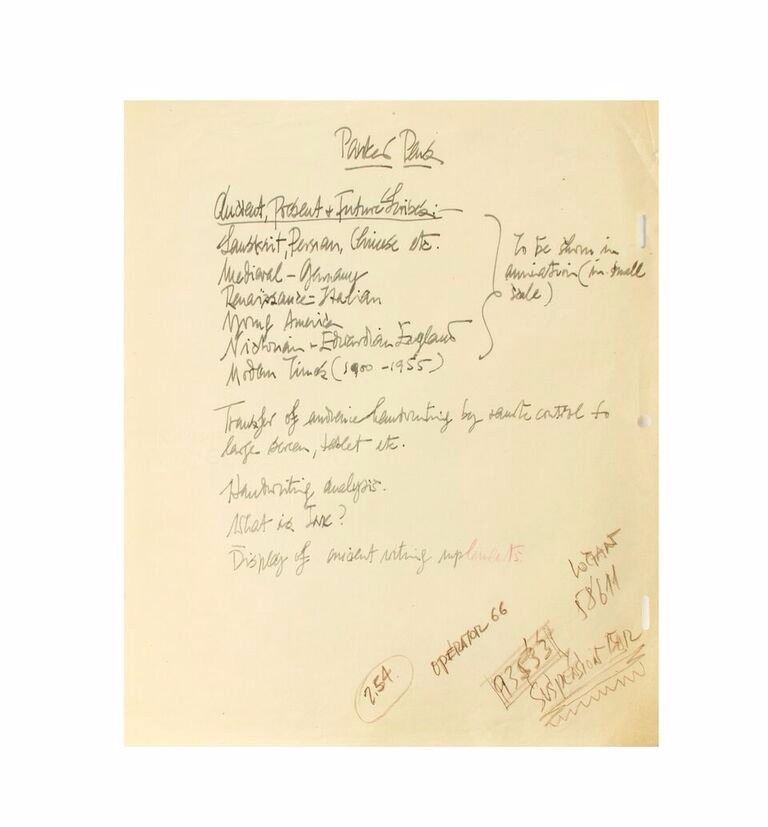 Parker Pens
Ancient, Present + Future Scribes:
Sanskrit, Persian, Chinese etc.
Medieval - Germany
Renaissance - Italian
Young America
Victorian + Edwardian England
Modern Times (1900 - 1955)
To be shown in
animation (in small
scale)
Transfer of audience handwriting by remote control to
large screen, tablet etc.
Handwriting analysis.
What is Ink?
Display of ancient writing implements.
LOGAN
58611
OPERATOR 66
254.
SUSPENSION